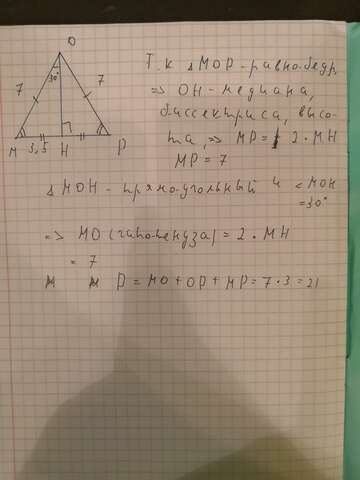 O
30°
7
7
M 3,5 H P
Т.к △MOP - равнобедр.
=> OH - медиана,
биссектриса, высо-
та, => MP = 2 · MH
MP = 7
△ MOH - прямоугольный и ∠MOH
= 30°
=> MO (гипотенуза) = 2 · MH
= 7
P = MO + OP + MP = 7 · 3 = 21